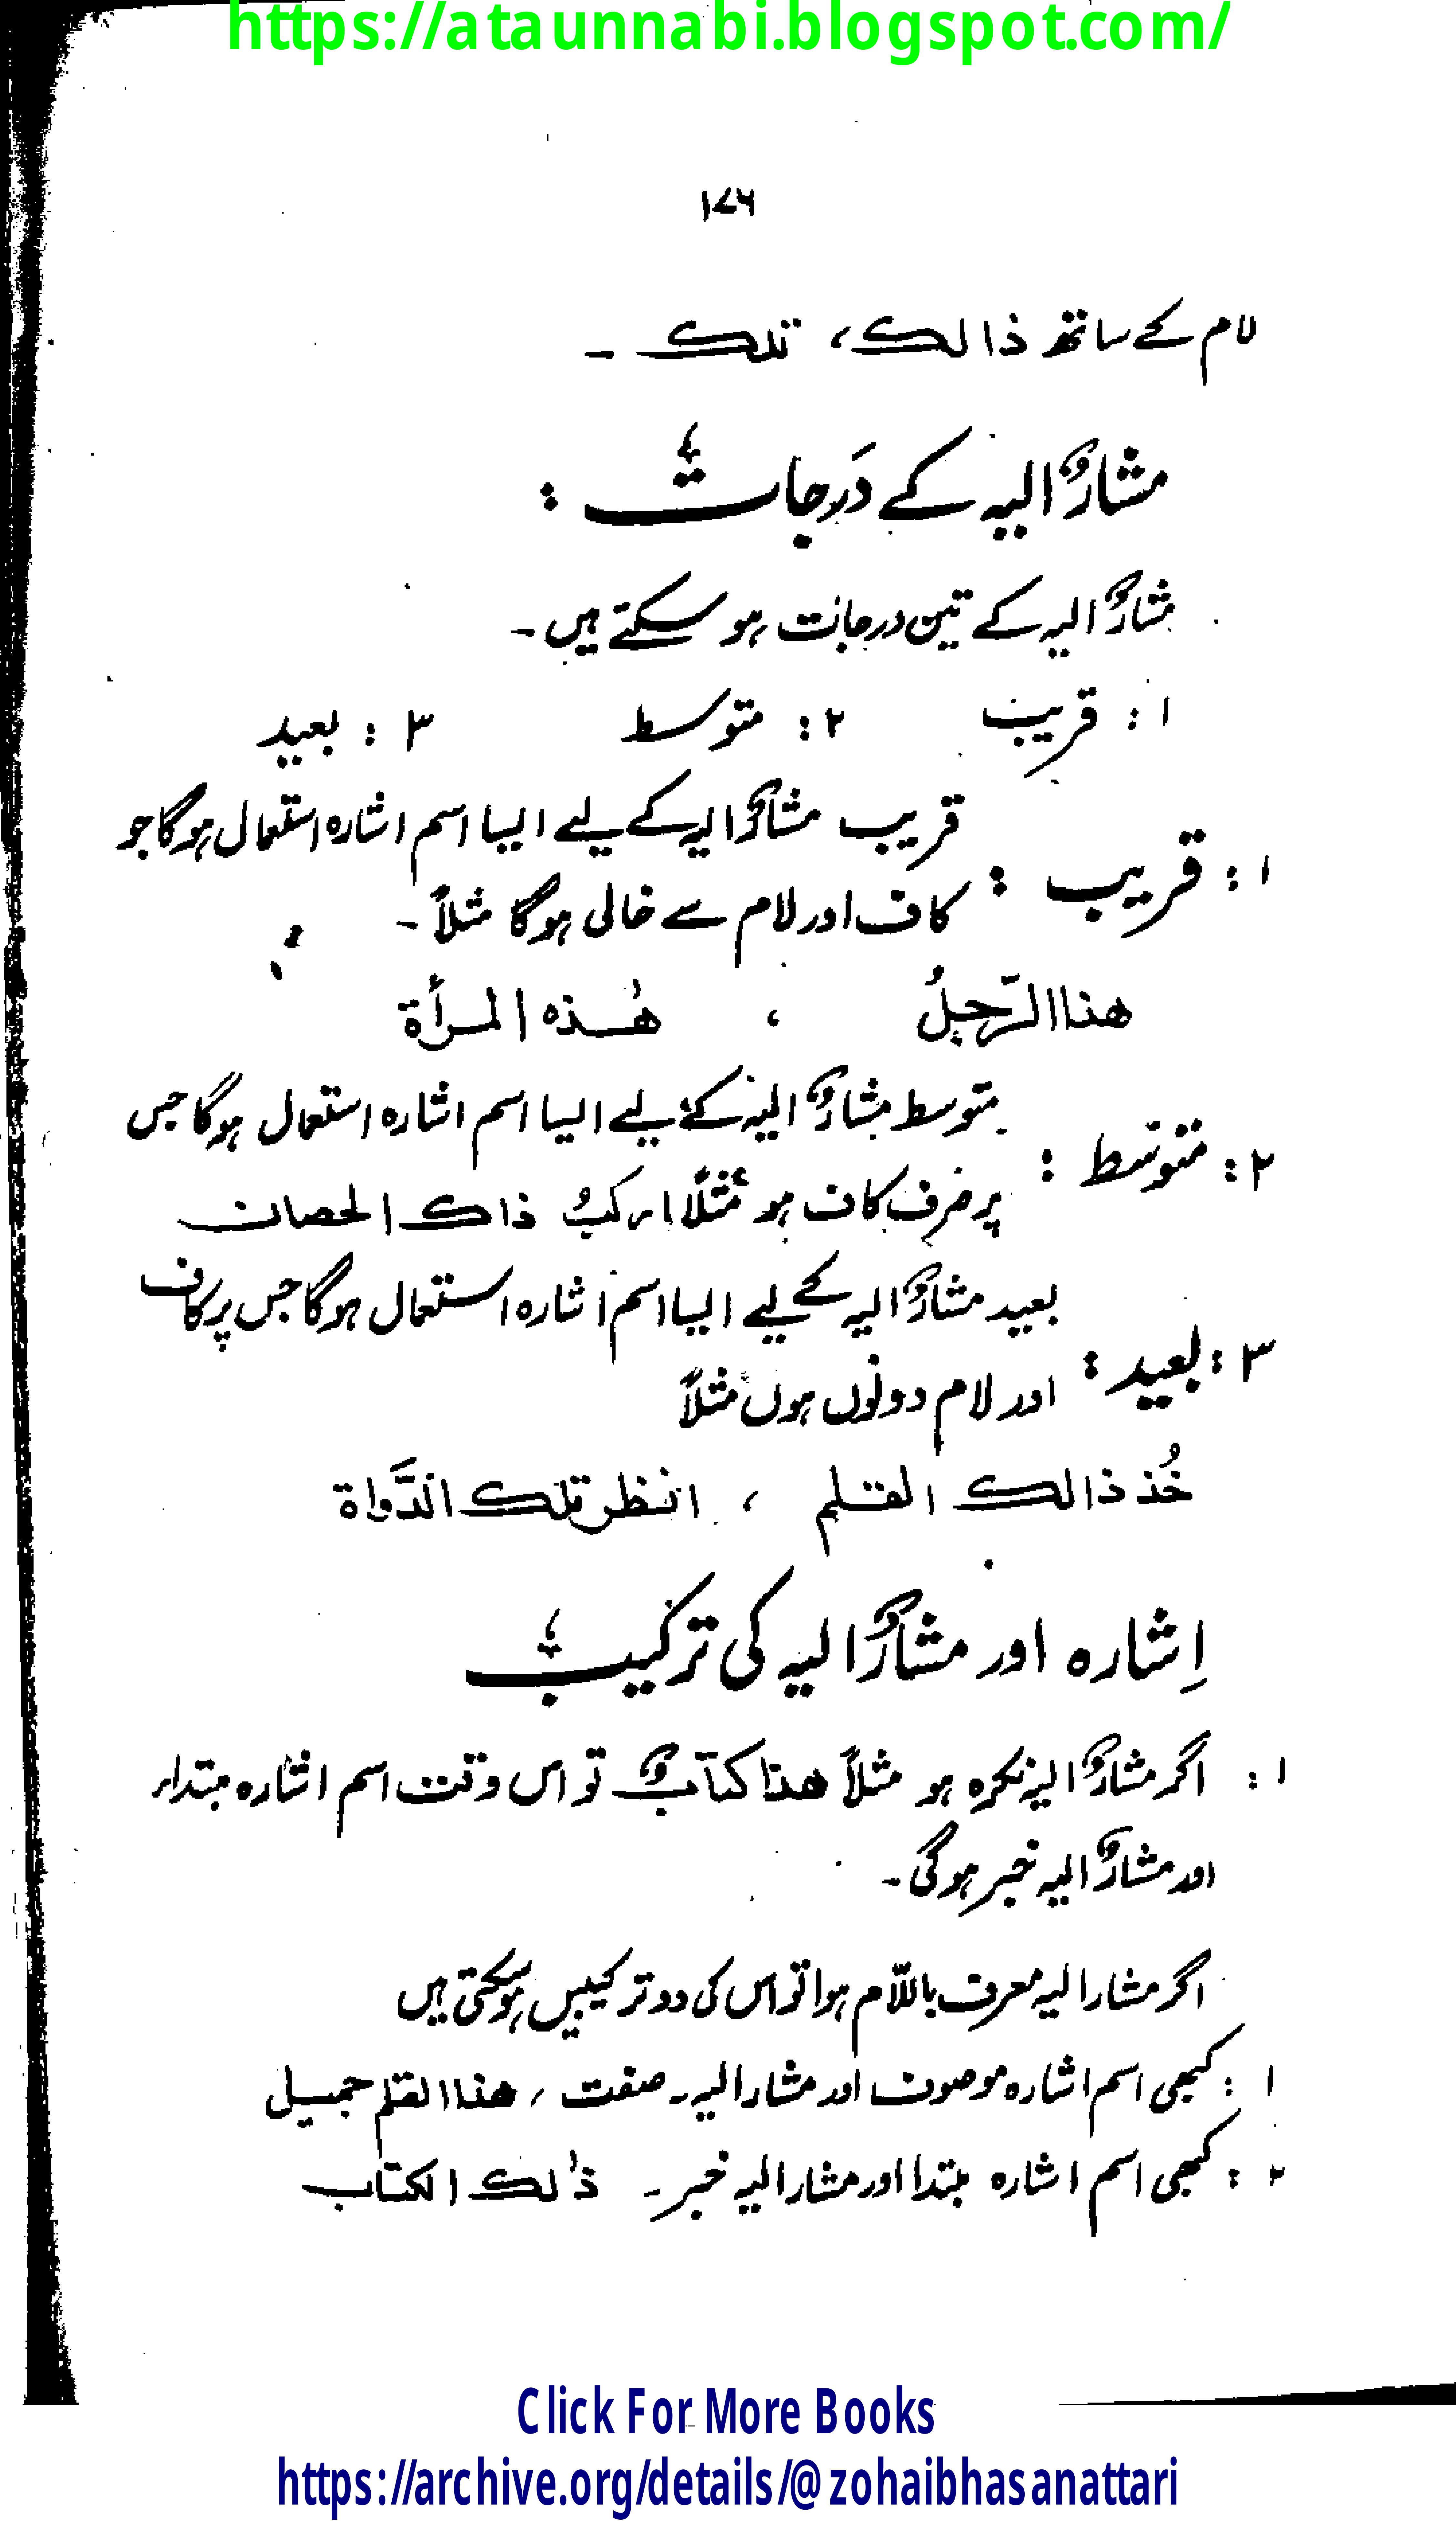 https://ataunnabi.blogspot.com/
۱۷۶
لام کے ساتھ ذالک، تلک ۔
مشارٌ الیہ کے دَرجات :
مشارٌ الیہ کے تین درجات ہو سکتے ہیں ۔
۱ : قریب ۲ : متوسط ۳ : بعید
۱ : قریب : قریب مشارٌ الیہ کے لیے ایسا اسم اشارہ استعمال ہوگا جو
کاف اور لام سے خالی ہوگا مثلاً ۔
هذا الرّجلُ ، هٰذه المرأة
۲ : متوسّط : متوسط مشارٌ الیہ کے لیے ایسا اسم اشارہ استعمال ہوگا جس
پر صرف کاف ہو مثلاً ارکبُ ذاک الحصان
۳ : بعید : بعید مشارٌ الیہ کے لیے ایسا اسم اشارہ استعمال ہوگا جس پر کاف
اور لام دونوں ہوں مثلاً
خُذ ذالک القلم ، انظر تلک الدَّواة
اِشارہ اور مشارٌ الیہ کی ترکیب
۱ : اگر مشارٌ الیہ نکرہ ہو مثلاً هذا کتابٌ تو اس وقت اسم اشارہ مبتداء
اور مشارٌ الیہ خبر ہوگی ۔
اگر مشارالیہ معرف باللّام ہوا تو اس کی دو ترکیبیں ہو سکتی ہیں
۱ : کبھی اسم اشارہ موصوف اور مشارالیہ ۔ صفت ، هذا القلم جمیل
۲ : کبھی اسم اشارہ مبتدا اور مشارالیہ خبر ۔ ذٰلک الکتاب
Click For More Books
https://archive.org/details/@zohaibhasanattari